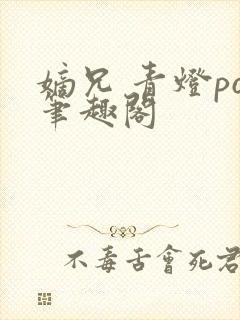 嫡兄 青燈po
筆趣閣
不毒舌會死君